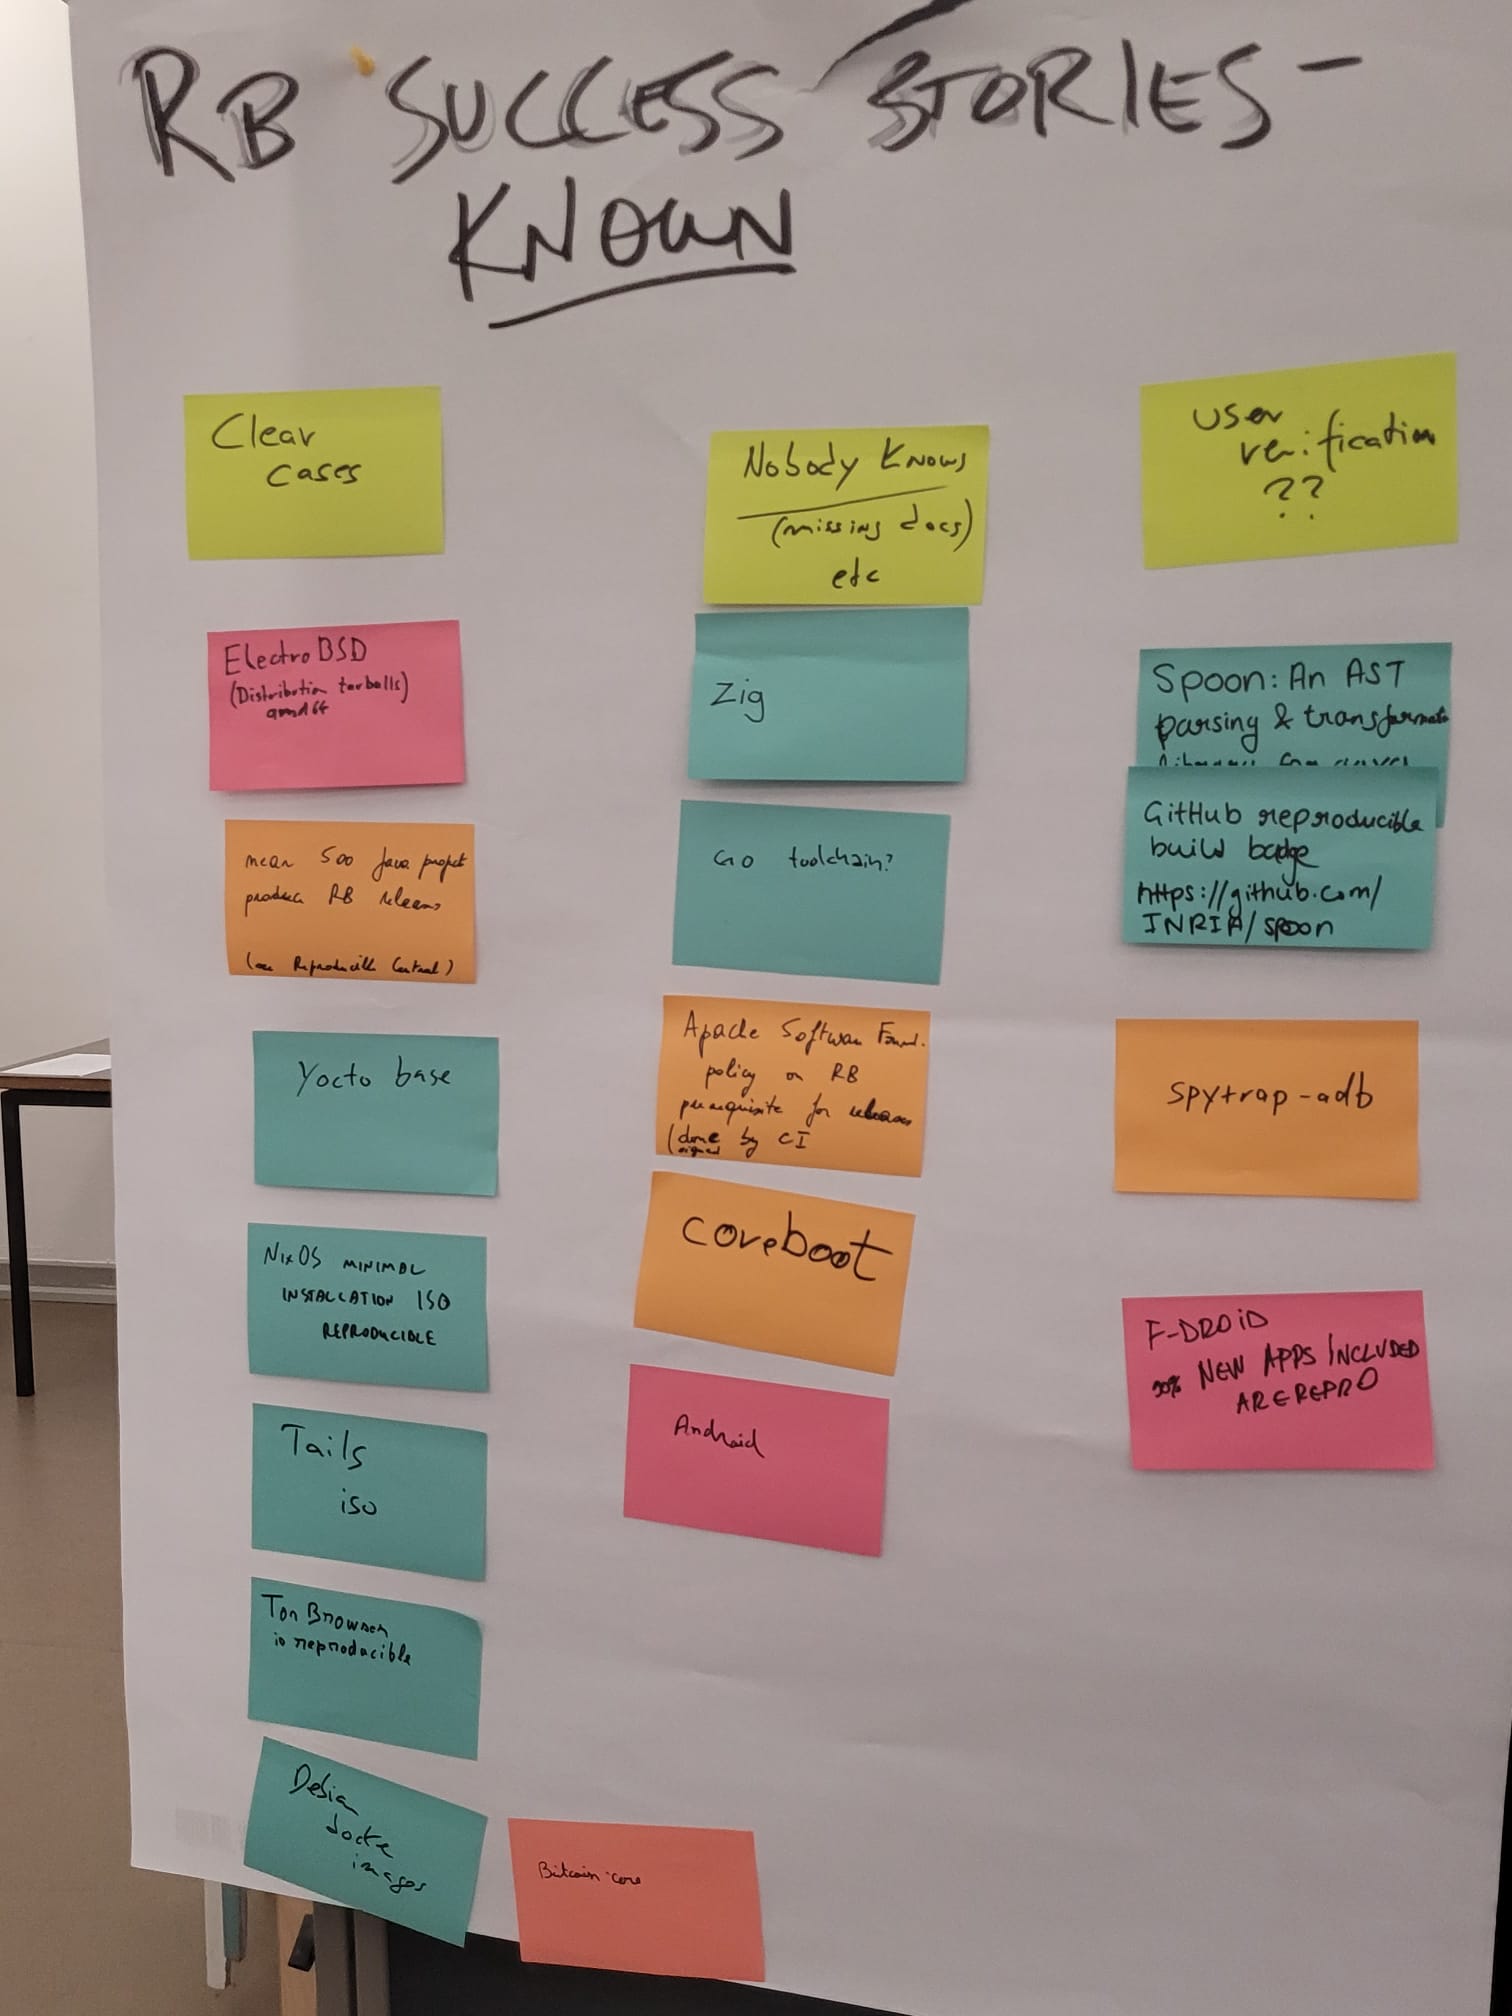 RB SUCCESS STORIES -
KNOWN
Clear
cases
ElectroBSD
(Distribution tarballs)
amd64
mean 500 Java projet
produce RB releases
(see Reproducible Central)
Yocto base
NixOS MINIMAL
INSTALLATION ISO
REPRODUCIBLE
Tails
iso
Tor Browser
is reproducible
Debian
docke
images
Bitcoin-core
Nobody Knows
(missing docs)
etc
Zig
Go toolchain?
Apache Software Found.
policy on RB
prerequisite for releases
(done by CI
signed
coreboot
Android
User
verification
??
Spoon: An AST
parsing &
GitHub reproducible
build badge
https://github.com/
INRIA/spoon
spytrap-adb
F-DROID
NEW APPS INCLUDED
ARE REPRO